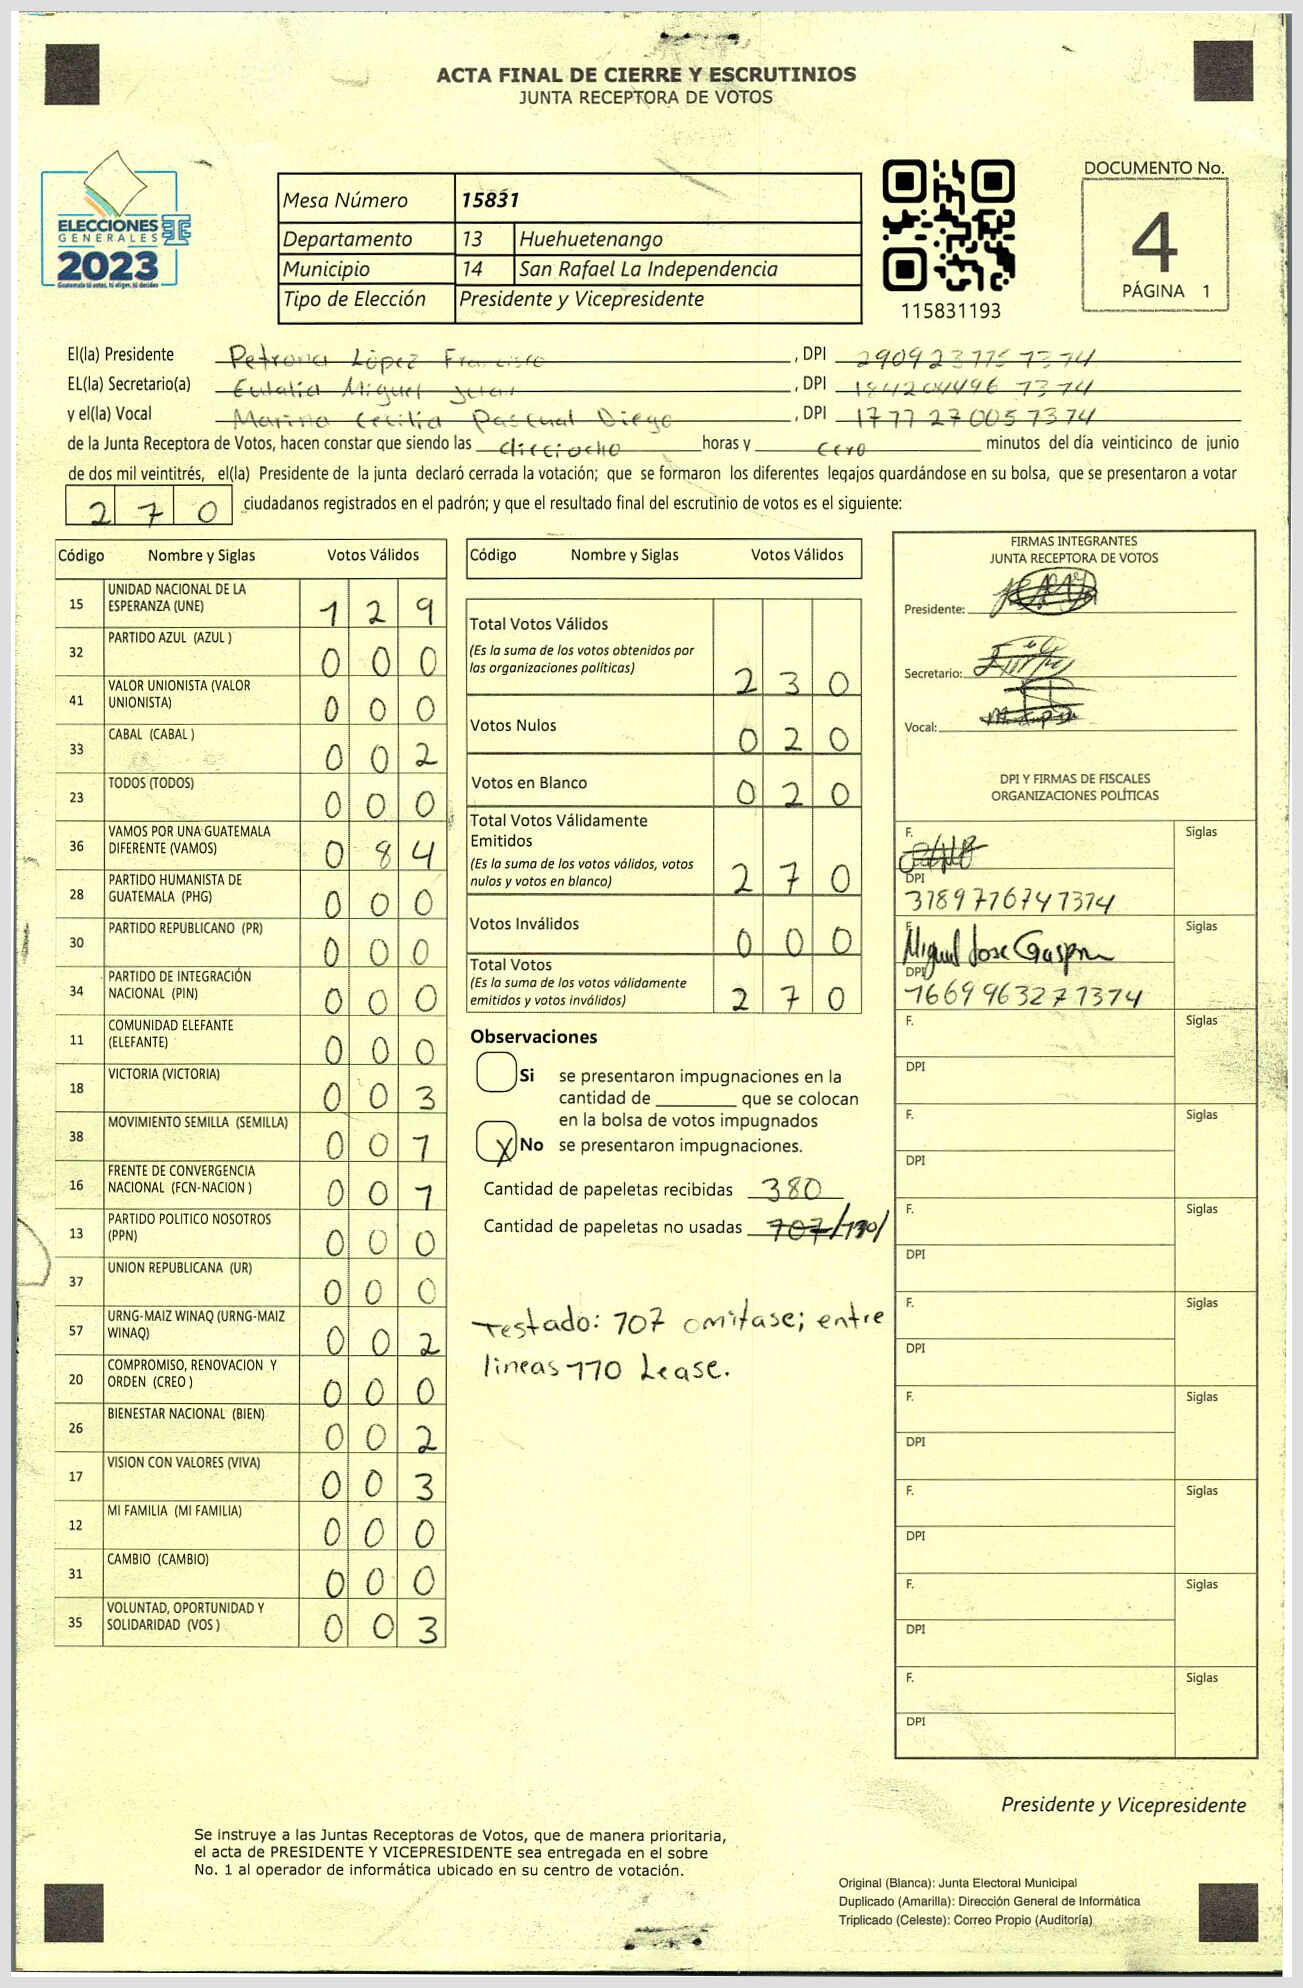 ACTA FINAL DE CIERRE Y ESCRUTINIOS
JUNTA RECEPTORA DE VOTOS
ELECCIONES
GENERALES
2023
Guatemala tú votas, tú eliges, tú decides
Mesa Número 15831
Departamento 13 Huehuetenango
Municipio 14 San Rafael La Independencia
Tipo de Elección Presidente y Vicepresidente
115831193
DOCUMENTO No.
4
PÁGINA 1
El(la) Presidente Petrona López Francisco, DPI 2909237757374
EL(la) Secretario(a) Eulalia Miguel Juan, DPI 1842044967374
y el(la) Vocal Marina Cecilia Pascual Diego, DPI 1777270057374
de la Junta Receptora de Votos, hacen constar que siendo las dieciocho horas y cero minutos del día veinticinco de junio
de dos mil veintitrés, el(la) Presidente de la junta declaró cerrada la votación; que se formaron los diferentes legajos guardándose en su bolsa, que se presentaron a votar
270 ciudadanos registrados en el padrón; y que el resultado final del escrutinio de votos es el siguiente:
Código Nombre y Siglas Votos Válidos
15 UNIDAD NACIONAL DE LA
ESPERANZA (UNE) 129
32 PARTIDO AZUL (AZUL ) 000
41 VALOR UNIONISTA (VALOR
UNIONISTA) 000
33 CABAL (CABAL ) 002
23 TODOS (TODOS) 000
36 VAMOS POR UNA GUATEMALA
DIFERENTE (VAMOS) 084
28 PARTIDO HUMANISTA DE
GUATEMALA (PHG) 000
30 PARTIDO REPUBLICANO (PR) 000
34 PARTIDO DE INTEGRACIÓN
NACIONAL (PIN) 000
11 COMUNIDAD ELEFANTE
(ELEFANTE) 000
18 VICTORIA (VICTORIA) 003
38 MOVIMIENTO SEMILLA (SEMILLA) 001
16 FRENTE DE CONVERGENCIA
NACIONAL (FCN-NACION ) 001
13 PARTIDO POLITICO NOSOTROS
(PPN) 000
37 UNION REPUBLICANA (UR) 000
57 URNG-MAIZ WINAQ (URNG-MAIZ
WINAQ) 002
20 COMPROMISO, RENOVACION Y
ORDEN (CREO ) 000
26 BIENESTAR NACIONAL (BIEN) 002
17 VISION CON VALORES (VIVA) 003
12 MI FAMILIA (MI FAMILIA) 000
31 CAMBIO (CAMBIO) 000
35 VOLUNTAD, OPORTUNIDAD Y
SOLIDARIDAD (VOS ) 003
Código Nombre y Siglas Votos Válidos
Total Votos Válidos
(Es la suma de los votos obtenidos por
las organizaciones políticas) 230
Votos Nulos 020
Votos en Blanco 020
Total Votos Válidamente
Emitidos
(Es la suma de los votos válidos, votos
nulos y votos en blanco) 270
Votos Inválidos 000
Total Votos
(Es la suma de los votos válidamente
emitidos y votos inválidos) 270
Observaciones
Si se presentaron impugnaciones en la
cantidad de ________ que se colocan
en la bolsa de votos impugnados
X No se presentaron impugnaciones.
Cantidad de papeletas recibidas 380
Cantidad de papeletas no usadas 107/110/
Testado: 107 omitase; entre
lineas 110 Lease.
FIRMAS INTEGRANTES
JUNTA RECEPTORA DE VOTOS
Presidente:
Secretario:
Vocal:
DPI Y FIRMAS DE FISCALES
ORGANIZACIONES POLÍTICAS
F. Siglas
DPI
3189776747374
F. Miguel Jose Gaspar Siglas
DPI
1669963271374
F. Siglas
DPI
F. Siglas
DPI
F. Siglas
DPI
F. Siglas
DPI
F. Siglas
DPI
F. Siglas
DPI
F. Siglas
DPI
F. Siglas
DPI
Presidente y Vicepresidente
Se instruye a las Juntas Receptoras de Votos, que de manera prioritaria,
el acta de PRESIDENTE Y VICEPRESIDENTE sea entregada en el sobre
No. 1 al operador de informática ubicado en su centro de votación.
Original (Blanca): Junta Electoral Municipal
Duplicado (Amarilla): Dirección General de Informática
Triplicado (Celeste): Correo Propio (Auditoría)